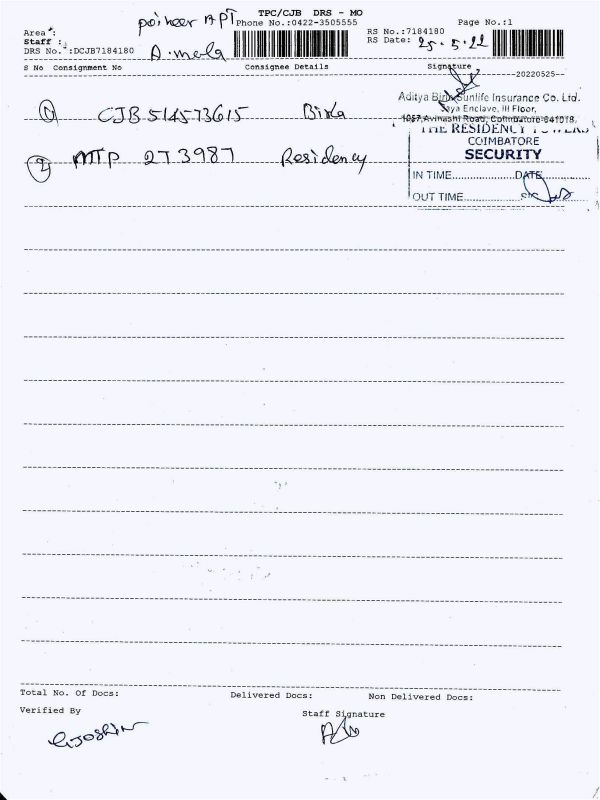 TPC/CJB DRS - MO
Area : poineer APT Phone No.:0422-3505555 Page No.:1
Staff : A. mala RS No.:7184180
DRS No. :DCJB7184180 RS Date: 25.5.22
S No Consignment No Consignee Details Signature
20220525
1 CJB 514573615 Birla
Aditya Birla Sunlife Insurance Co. Ltd.
Jaya Enclave, III Floor,
1057, Avinashi Road, Coimbatore-641018.
2 MTP 273987 Residency
THE RESIDENCY TOWERS
COIMBATORE
SECURITY
IN TIME DATE
OUT TIME SIG
Total No. Of Docs: Delivered Docs: Non Delivered Docs:
Verified By Staff Signature